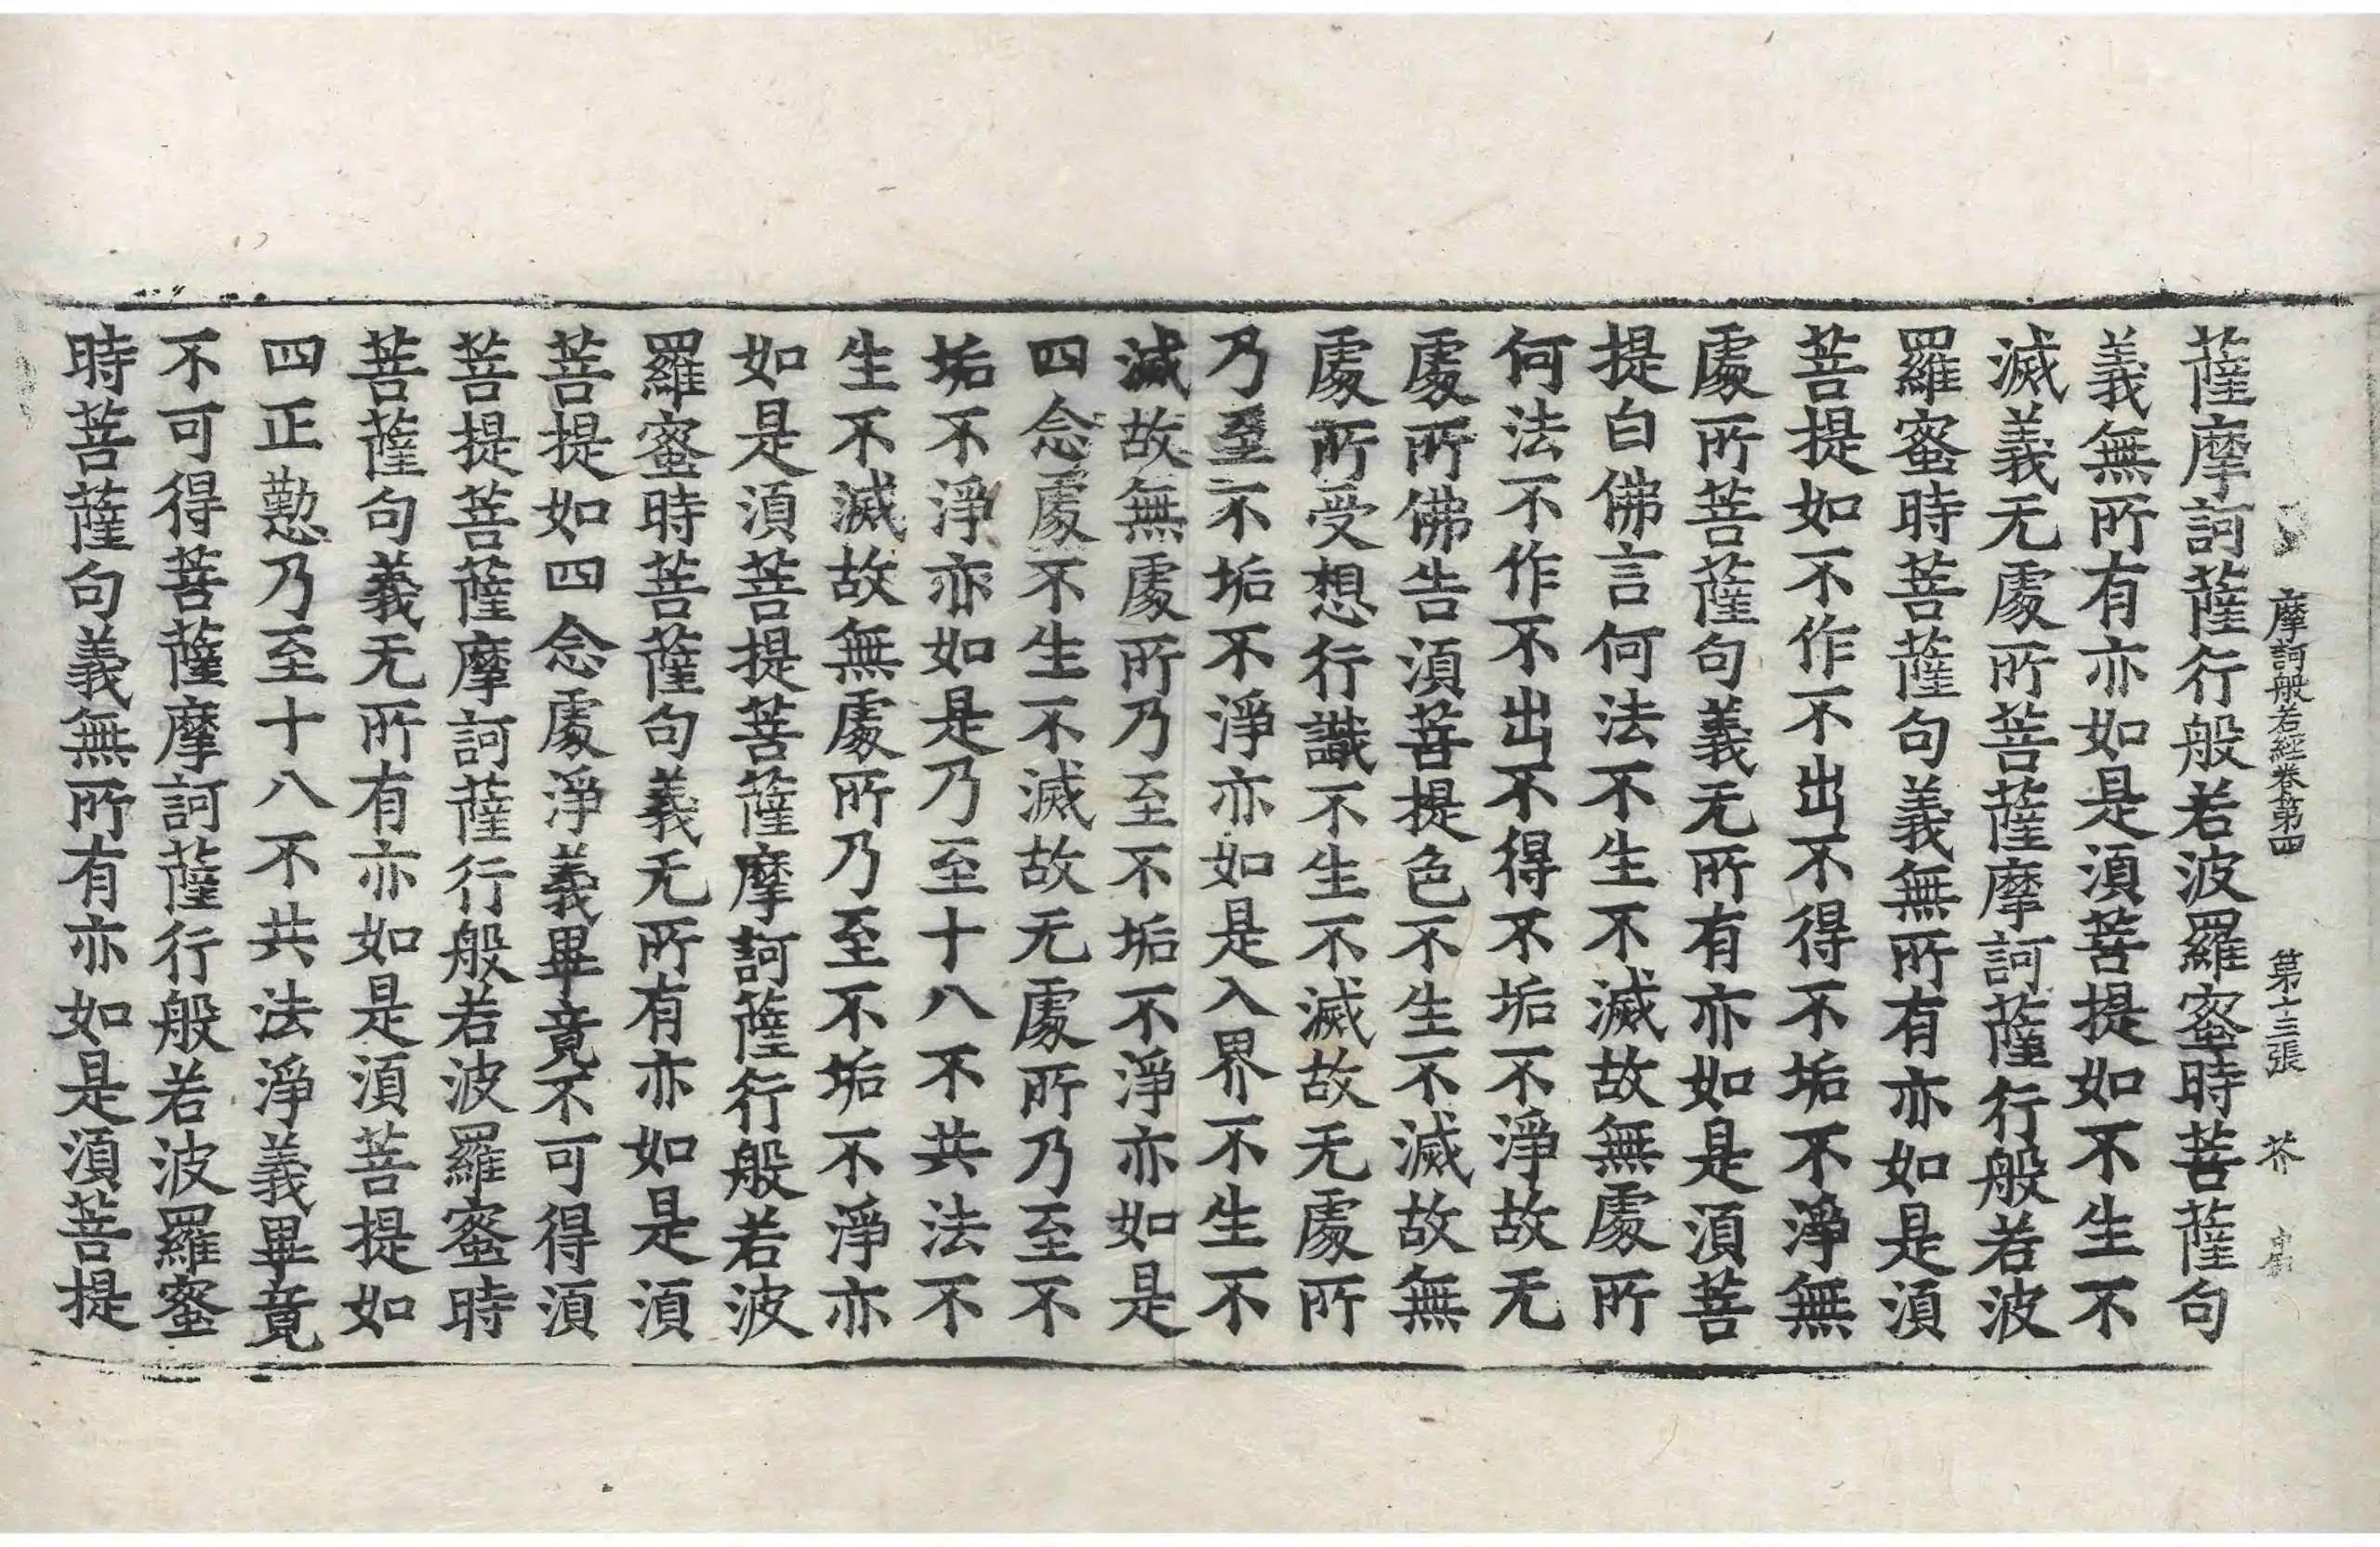 摩訶般若經卷第四 第十三張 芥
薩摩訶薩行般若波羅蜜時菩薩句
義無所有亦如是湏菩提如不生不
滅義无處所菩薩摩訶薩行般若波
羅蜜時菩薩句義無所有亦如是湏
菩提如不作不出不得不垢不淨無
處所菩薩句義无所有亦如是湏菩
提白佛言何法不生不滅故無處所
何法不作不出不得不垢不淨故无
處所佛告湏菩提色不生不滅故無
處所受想行識不生不滅故无處所
乃至不垢不淨亦如是入界不生不
滅故無處所乃至不垢不淨亦如是
四念處不生不滅故无處所乃至不
垢不淨亦如是乃至十八不共法不
生不滅故無處所乃至不垢不淨亦
如是湏菩提菩薩摩訶薩行般若波
羅蜜時菩薩句義无所有亦如是湏
菩提如四念處淨義畢竟不可得湏
菩提菩薩摩訶薩行般若波羅蜜時
菩薩句義无所有亦如是湏菩提如
四正懃乃至十八不共法淨義畢竟
不可得菩薩摩訶薩行般若波羅蜜
時菩薩句義無所有亦如是湏菩提